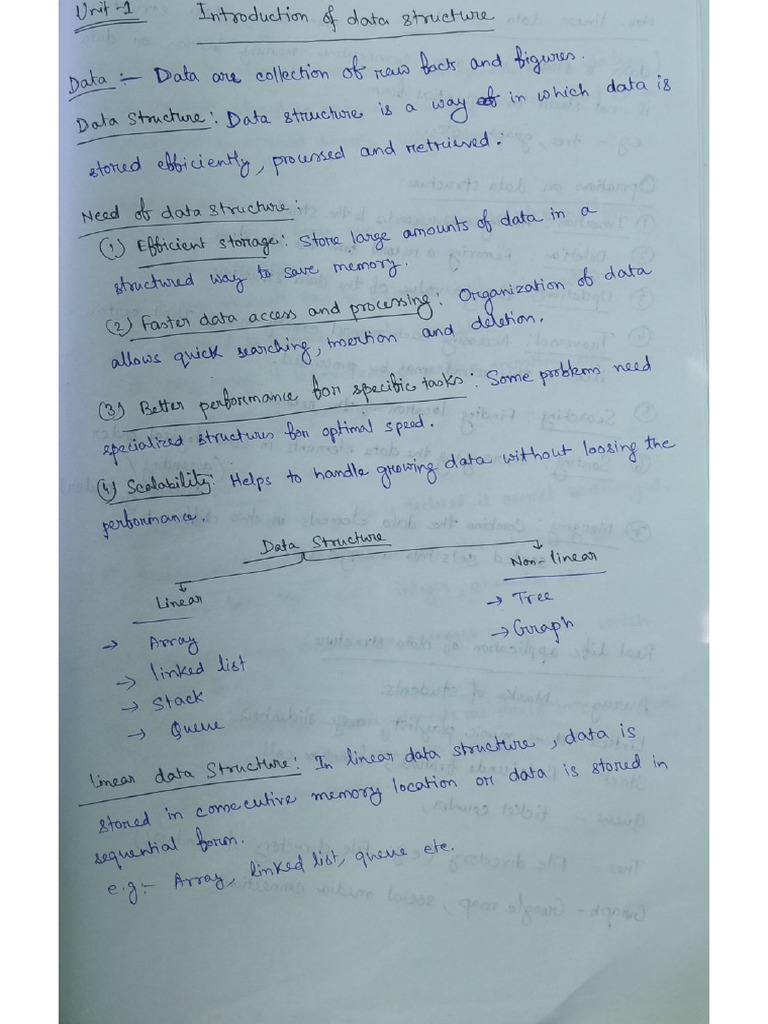 Unit-1 Introduction of data structure
Data :- Data are collection of raw facts and figures.
Data Structure: Data structure is a way of in which data is
stored efficiently, processed and retrieved.
Need of data structure:
(1) Efficient storage: Store large amounts of data in a
structured way to save memory.
(2) Faster data access and processing: Organization of data
allows quick searching, insertion and deletion.
(3) Better performance for specific tasks: Some problems need
specialized structures for optimal speed.
(4) Scalability: Helps to handle growing data without loosing the
performance.
Data Structure
Linear
Non-linear
→ Array
→ linked list
→ Stack
→ Queue
→ Tree
→ Graph
linear data Structure: In linear data structure, data is
stored in consecutive memory location or data is stored in
sequential form.
e.g:- Array, linked list, queue etc.